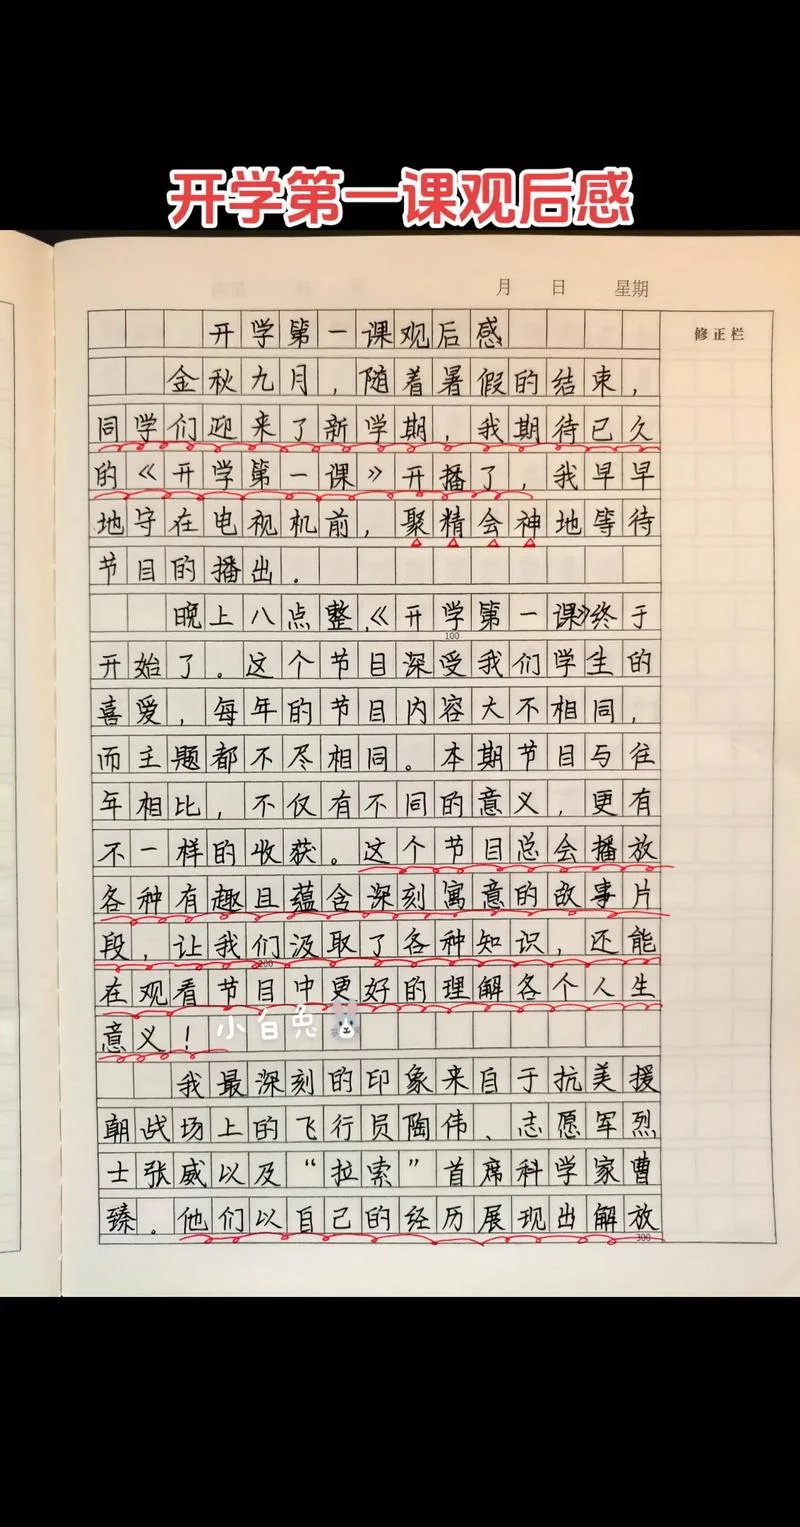 开学第一课观后感
月 日 星期
修正栏
开学第一课观后感
金秋九月，随着暑假的结束，
同学们迎来了新学期，我期待已久
的《开学第一课》开播了，我早早
地守在电视机前，聚精会神地等待
节目的播出.
晚上八点整,《开学第一课》终于
100
开始了。这个节目深受我们学生的
喜爱，每年的节目内容大不相同，
而主题都不尽相同。本期节目与往
年相比，不仅有不同的意义，更有
不一样的收获。这个节目总会播放
各种有趣且蕴含深刻寓意的故事片
段，让我们汲取了各种知识，还能
200
在观看节目中更好的理解各个人生
意义！
小白兔
我最深刻的印象来自于抗美援
朝战场上的飞行员陶伟、志愿军烈
士张威以及“拉索”首席科学家曹
臻。他们以自己的经历展现出解放
300